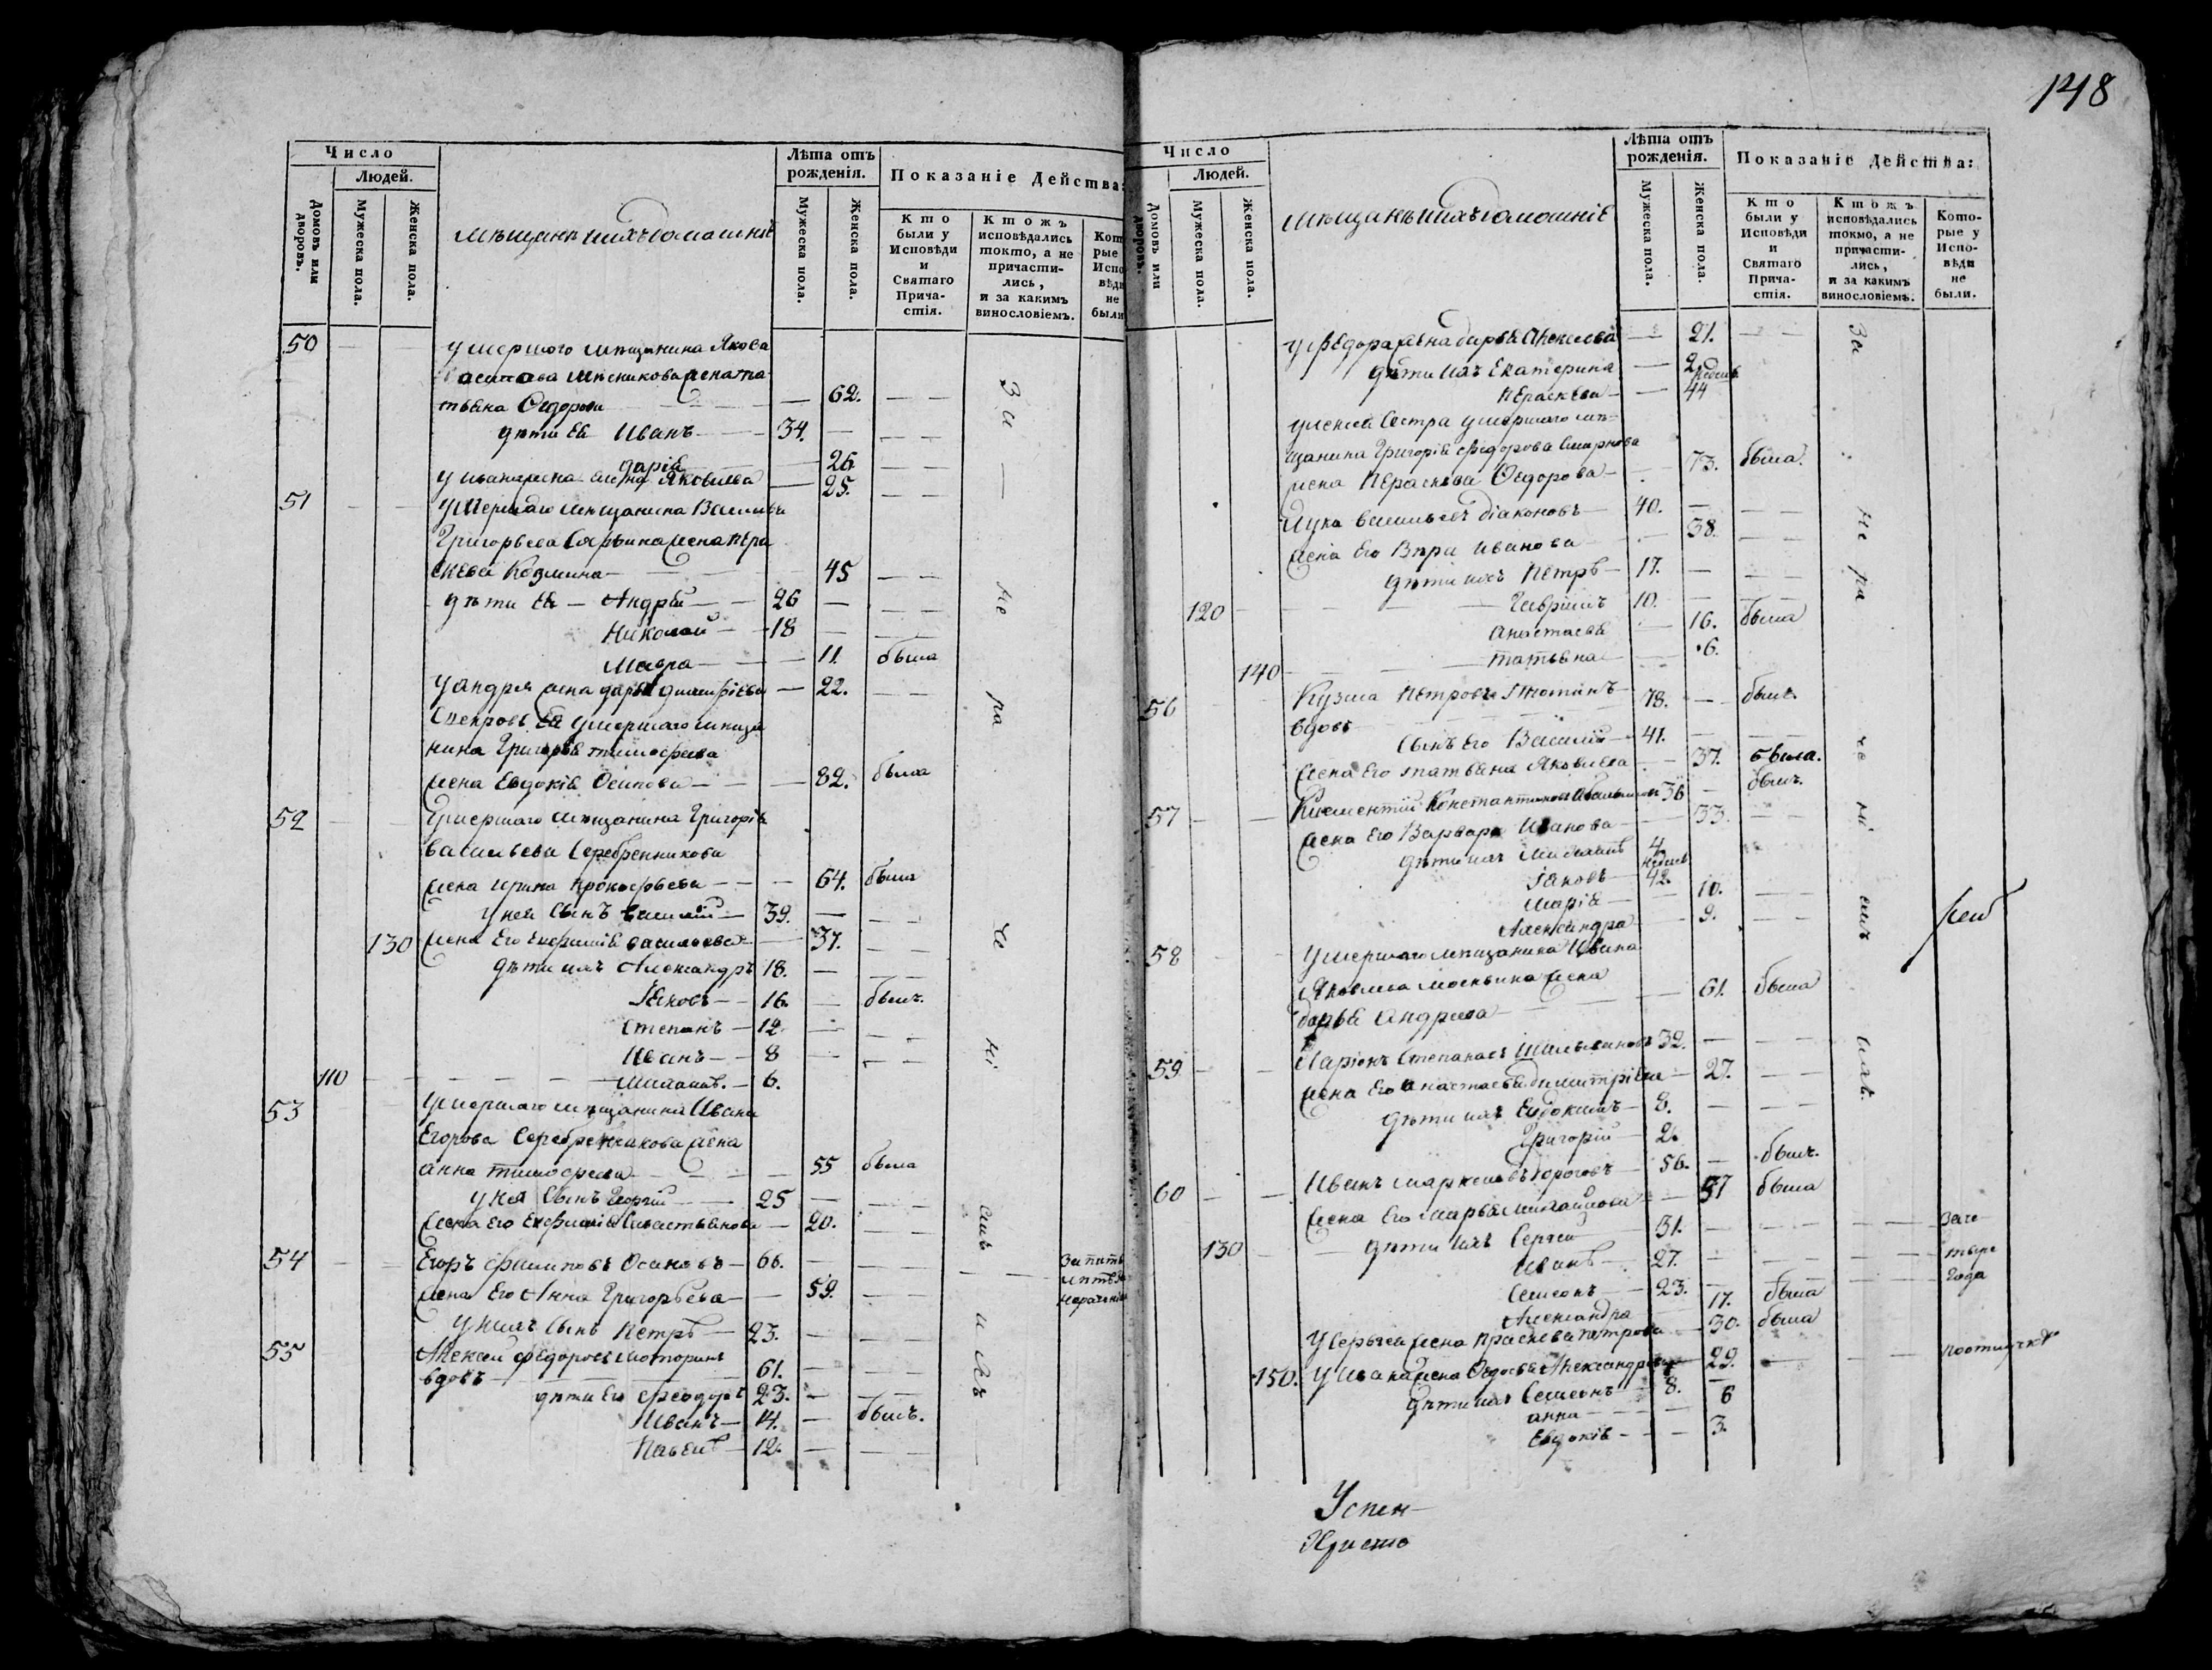 148
Число
Людей.
Домовъ или дворовъ.
Мужеска пола.
Женска пола.
Мѣщане и ихъ домашніе
Лѣта отъ рожденія.
Мужеска пола.
Женска пола.
Показаніе Действа:
Кто были у Исповѣди и Святаго Причастія.
Ктожъ исповѣдались токмо, а не причастились, и за какимъ винословіемъ.
Кот
рые
Испо
вѣди
не
были
50 — — умершого мѣщанина Якова
васильева мясникова жена та
тьяна Федорова — 62. — —
дѣти Ея Иванъ — 34. — — —
дарія — 26. — —
у ивана жена Елена Яковлева — 25. — —
51 — — умершаго мѣщанина Василья
Григорьева жена пера
скева Козмина — 45 — —
дѣти Ея — Андрей — 26 — — —
Николай — 18 — — —
Мавра — 11. была
у андрея жена дарья дмитріева — 22. — —
Свекровь Ея умершаго мѣща
нина Григорья тимофеева
жена Евдокія Осипова — 82. была
52 — — Умершаго мѣщанина Григорія
васильева Серебренникова
жена ирина прокофьева — 64. была
у нея сынъ василій — 39. — — —
130 жена Его Ефимія васильева — 37. — —
дѣти ихъ Александръ 18. — — —
Іаковъ — 16. — былъ.
Степанъ — 12 — — —
Иванъ — 8 — — —
110 — — Михаилъ. — 6.
53 умершаго мѣщанина Ивана
Егорова Серебренникова жена
анна тимофеева — 55 была
у нея сынъ Георгій — 25 — — —
жена его Ефимія Савастьянова — 20. — —
54 — — Егоръ Филиповъ Осановъ — 66. — — —
жена Его Анна Григорьева — 59. — —
у нихъ сынъ Петръ — 23. — — —
55 — — Алексей федоровъ Моторинъ
вдовъ — 61. — — —
дѣти Его Феодоръ 23. — — —
Иванъ — 14. — былъ.
Павелъ — 12. — — —
За — не ра че ні емъ и хъ
Число
Людей.
Домовъ или дворовъ.
Мужеска пола.
Женска пола.
Мѣщане и ихъ домашніе
Лѣта отъ рожденія.
Мужеска пола.
Женска пола.
Показаніе Действа:
Кто были у Исповѣди и Святаго Причастія.
Ктожъ исповѣдались токмо, а не причастились, и за какимъ винословіемъ.
Которые у Исповѣди не были.
у Федора жена дарья Алексеева — 21. — —
дѣти ихъ Екатерина — 2.
недель
Пераскева — 44
сестра умершаго мѣ
щанина Григорія Федорова Смирнова
жена Пераскева Федорова — 73. была.
Лука васильевъ діаконовъ — 40. — — —
жена Его Вера иванова — 38. — —
дѣти ихъ Петръ — 17. — — —
120 — — Гавріилъ 10. — — —
анастасія — 16. была
140 — — татьяна — 6.
56 — — Кузма Петровъ 78. — былъ.
вдовъ
сынъ Его Василій — 41. — — —
жена его татьяна Яковлева — 37. была.
57 — — Климентій Константиновъ 36 — былъ.
жена Его Варвара Иванова — 33. — —
дѣти ихъ Михаилъ 4.
недель
Іаковъ — 42.
Марія — 10. — —
Александра — 9. — —
58 — — умершаго мѣщанина Ивана
Яковлева Москвина жена
дарья Андреева — 61. была
59 — — Ларіонъ Степановъ 32. — — —
жена Его анастасья димитріева — 27. — —
дѣти ихъ Евдокимъ — 8. — — —
Григорій — 2.
60 — — Иванъ маркеловъ 56. — былъ.
жена Его марья михайлова — 57 была
130 — — дѣти ихъ Сергей 31. — — —
Иванъ — 27. — — —
Семеонъ — 23. —
Александра 17. была
у Сергея жена Праскева петрова — 30. была
150. у Ивана жена Федосья Александрова — 29. —
дѣти ихъ Семеонъ — 8. —
анна — 6
Евдокія — 3.
За не ра че ні емъ ихъ.
Успен
Христо